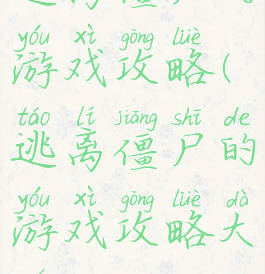 yóu xì gōng lüè
游戏攻略(
táo lí jiāng shī de
逃离僵尸的
yóu xì gōng lüè dà
游戏攻略大